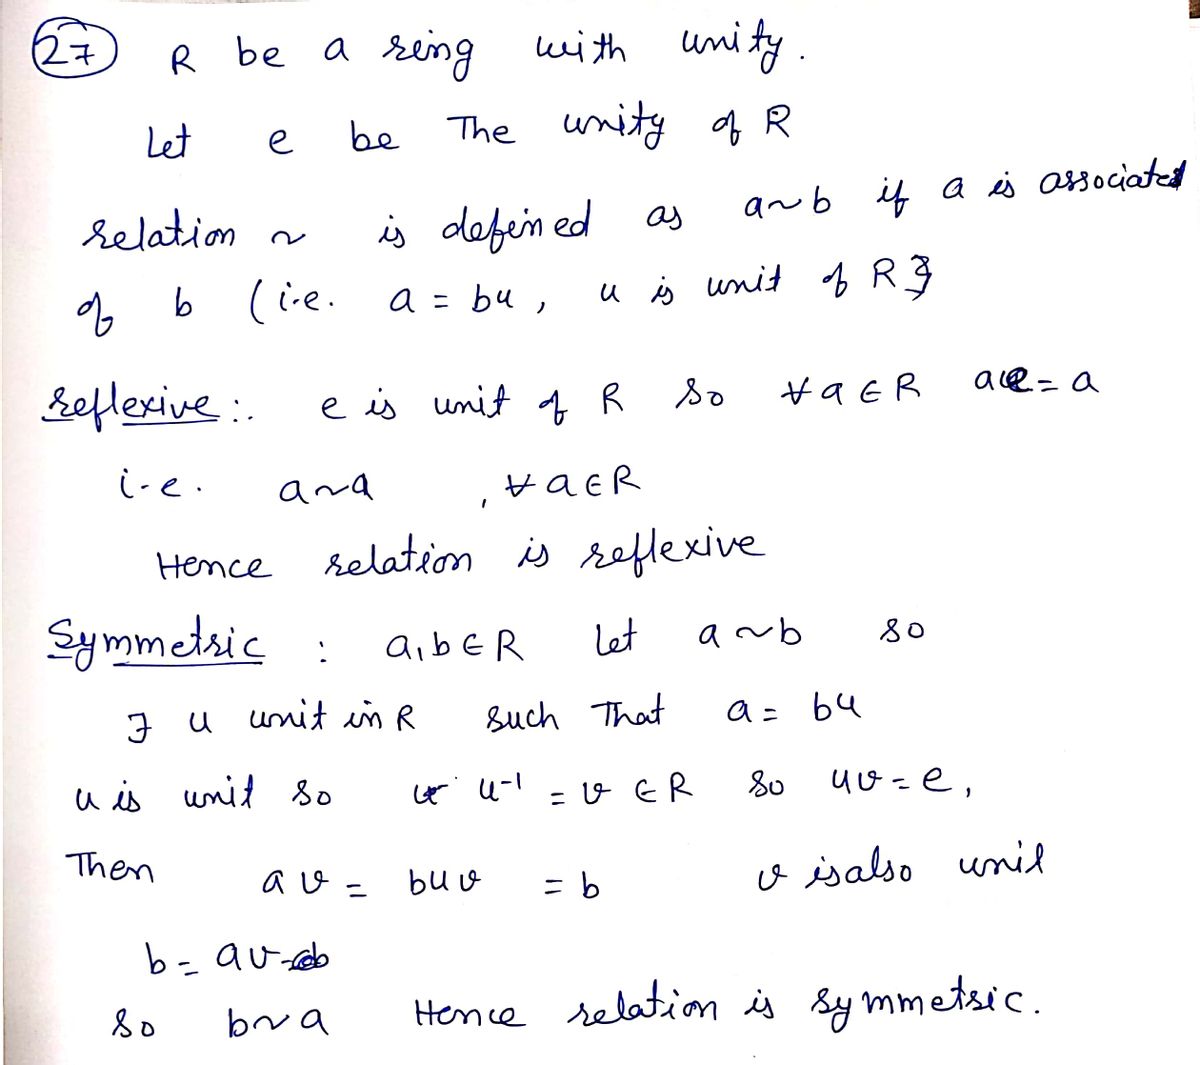 27 R be a ring with unity.
Let e be The unity of R
relation ~ is defined as a~b if a is associated
of b (i.e. a = bu, u is unit of R}
reflexive :. e is unit of R so ∀ a ∈ R ae = a
i.e. a~a , ∀ a ∈ R
Hence relation is reflexive
Symmetric : a, b ∈ R Let a ~ b so
∃ u unit in R such That a = bu
u is unit so u⁻¹ = v ∈ R so uv = e,
Then av = buv = b v is also unit
b = av
so b~a Hence relation is symmetric.